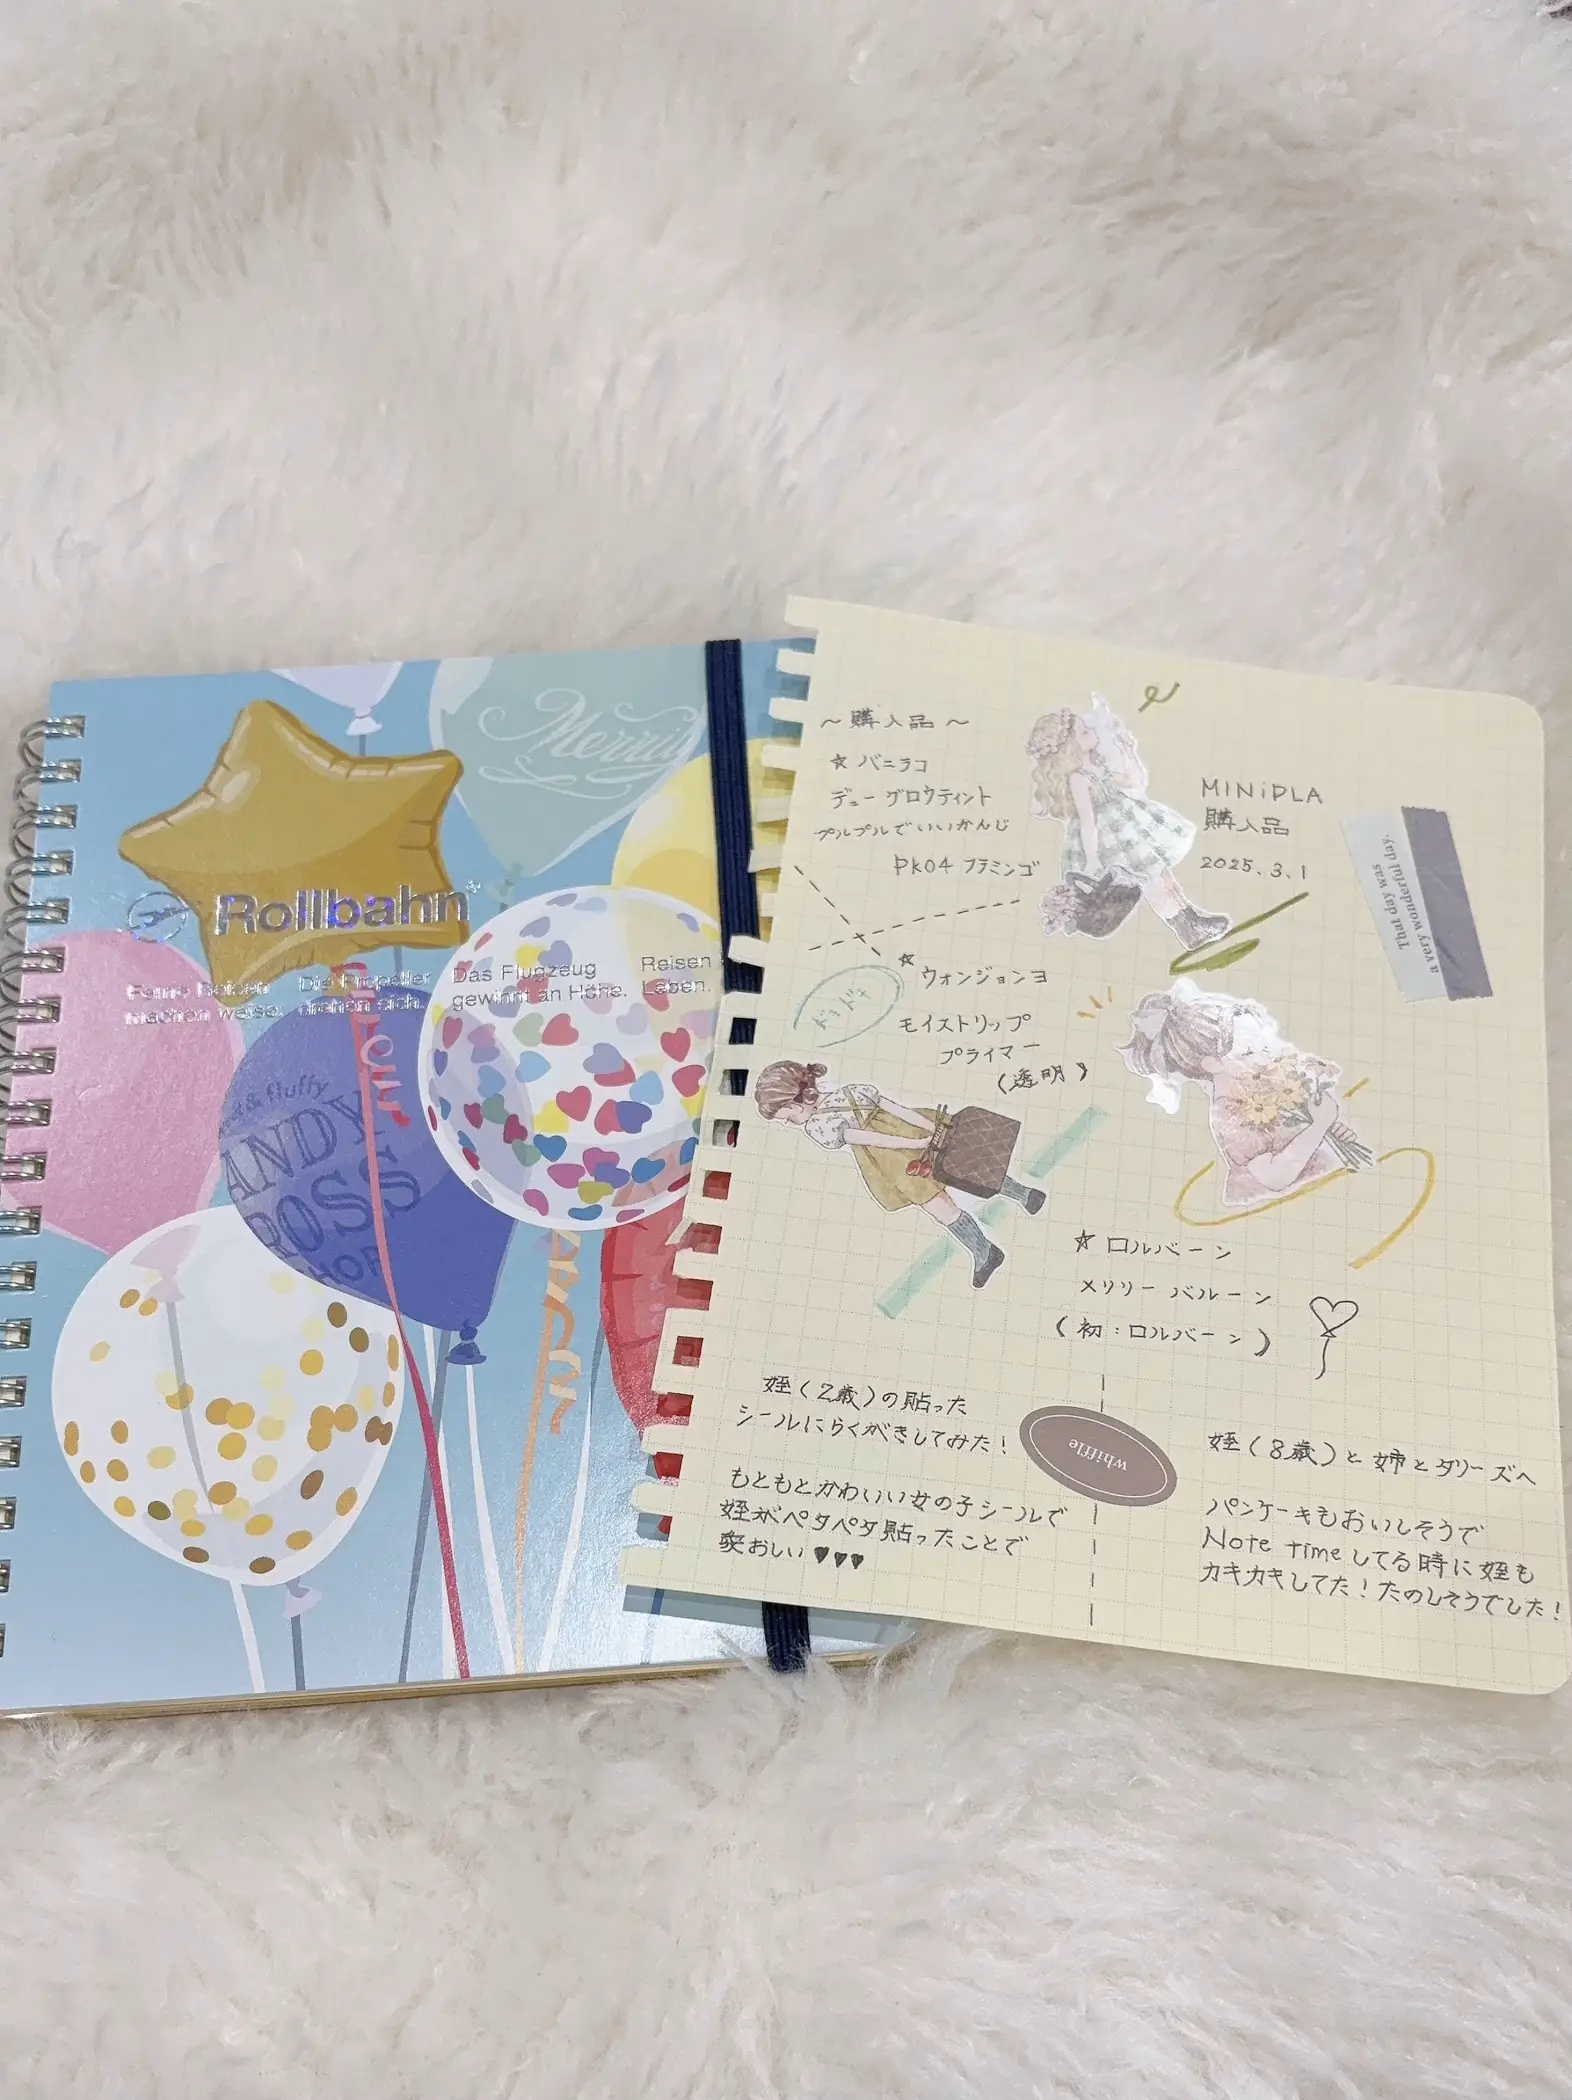 Merrily
Rollbahn
Ferne Reisen
machen weise.
Die Propeller
drehen sich.
Das Flugzeug
gewinnt an Höhe.
Reisen
Leben.
& fluffy
ANDY
ROSS
HOP
～購入品～
☆バニラコ
デューグロウティント
プルプルでいいかんじ
PK04 フラミンゴ
MINiPLA
購入品
2025.3.1
That day was
a very wonderful day.
☆ウォンジョンヨ
モイストリップ
プライマー
(透明)
☆ロルバーン
メリリーバルーン
(初:ロルバーン)
姪(2歳)の貼った
シールにらくがきしてみた!
もともとかわいい女の子シールで
姪がペタペタ貼ったことで
愛おしい♥♥♥
whiffle
姪(8歳)と姉とタリーズへ
パンケーキもおいしそうで
Note timeしてる時に姪も
カキカキしてた!たのしそうでした!